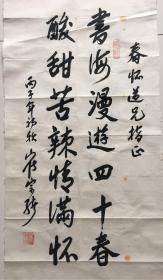 春怀道兄指正
書海漫遊四十春
酸甜苦辣情滿怀
丙子年初秋